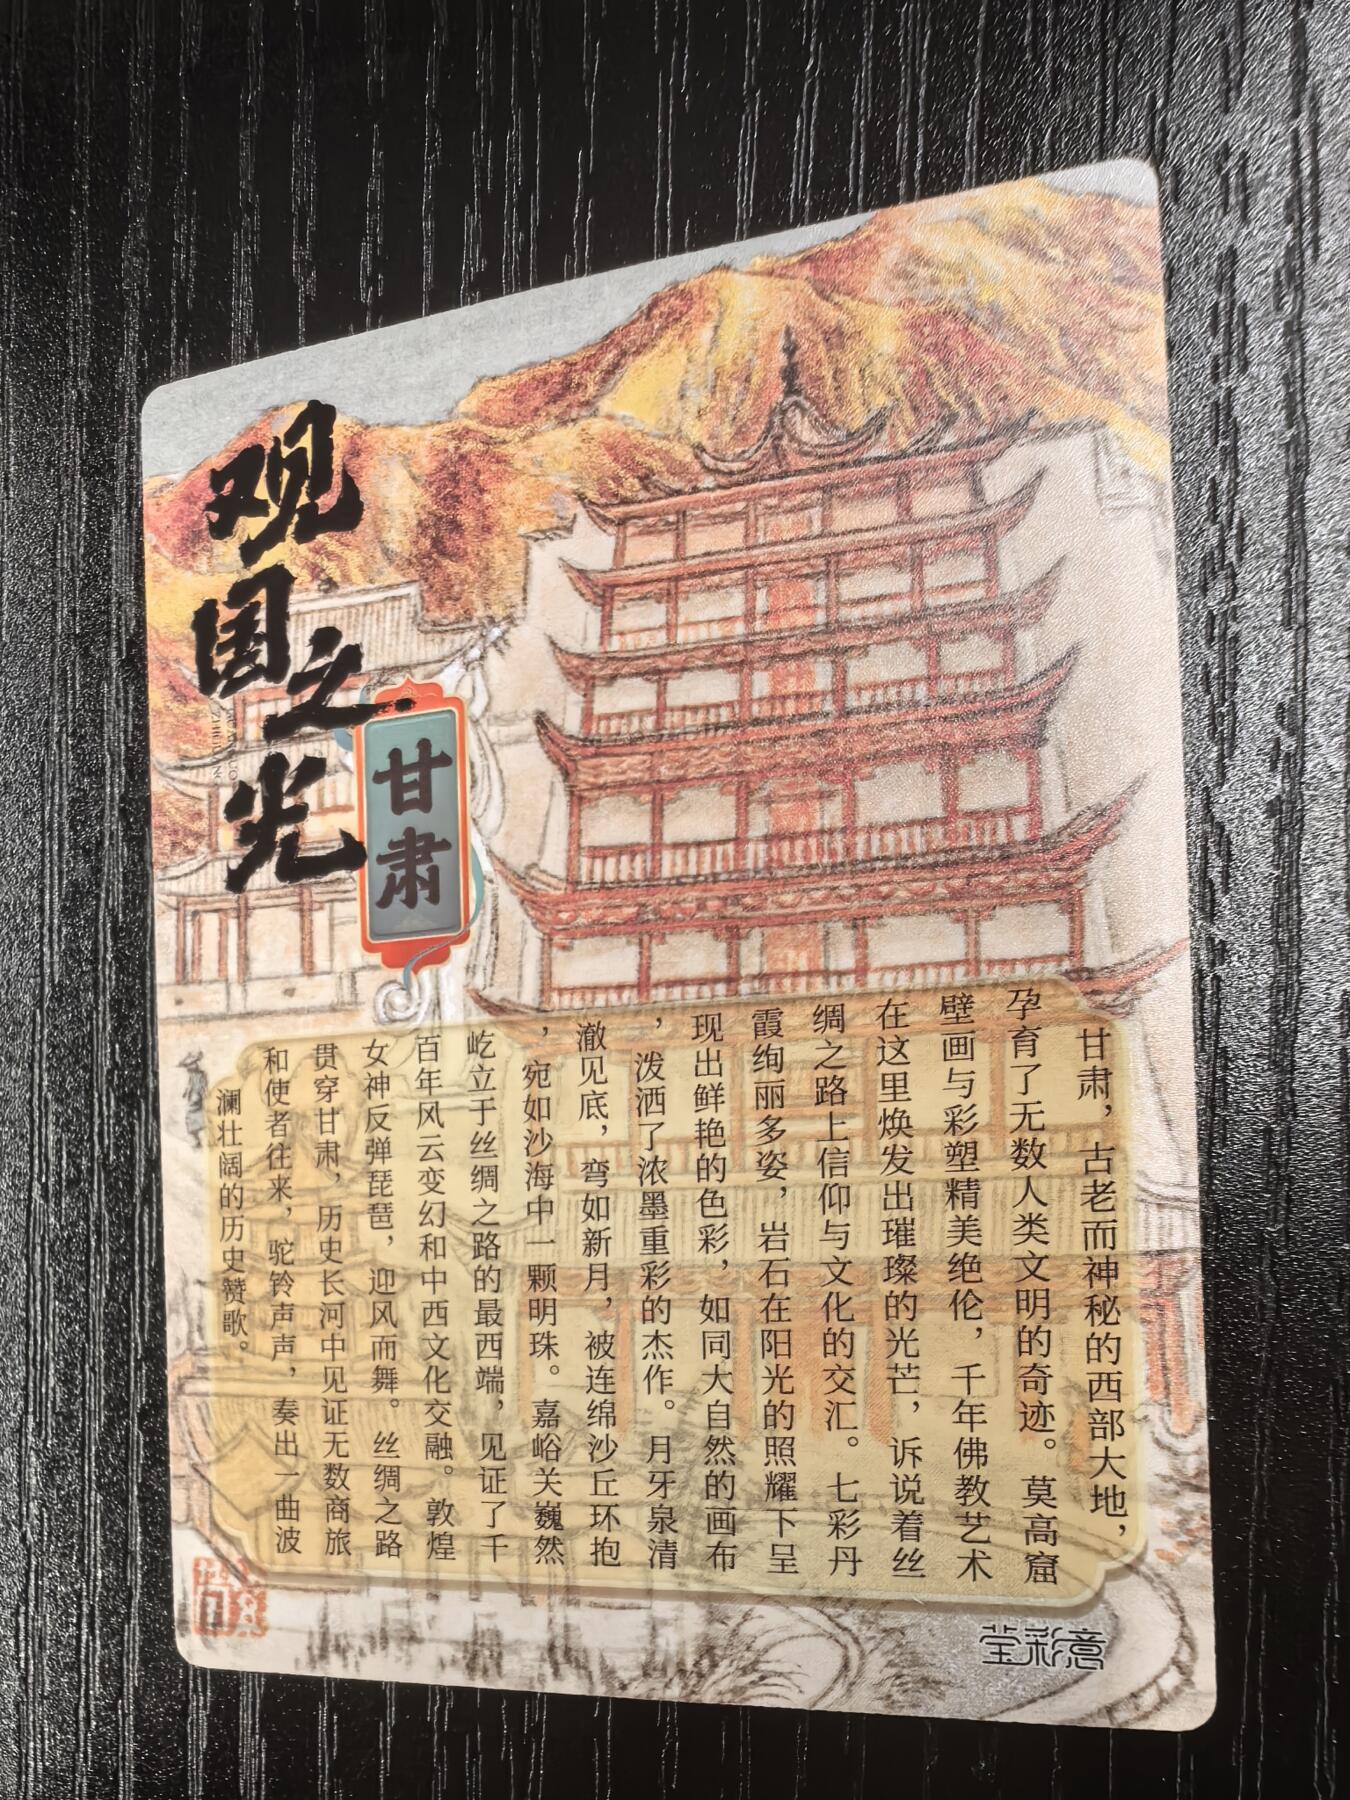 观国之光
甘肃
甘肃，古老而神秘的西部大地，
孕育了无数人类文明的奇迹。莫高窟
壁画与彩塑精美绝伦，千年佛教艺术
在这里焕发出璀璨的光芒，诉说着丝
绸之路上信仰与文化的交汇。七彩丹
霞绚丽多姿，岩石在阳光的照耀下呈
现出鲜艳的色彩，如同大自然的画布
，泼洒了浓墨重彩的杰作。月牙泉清
澈见底，弯如新月，被连绵沙丘环抱
，宛如沙海中一颗明珠。嘉峪关巍然
屹立于丝绸之路的最西端，见证了千
百年风云变幻和中西文化交融。敦煌
女神反弹琵琶，迎风而舞。丝绸之路
贯穿甘肃，历史长河中见证无数商旅
和使者往来，驼铃声声，奏出一曲波
澜壮阔的历史赞歌。
莹彩意